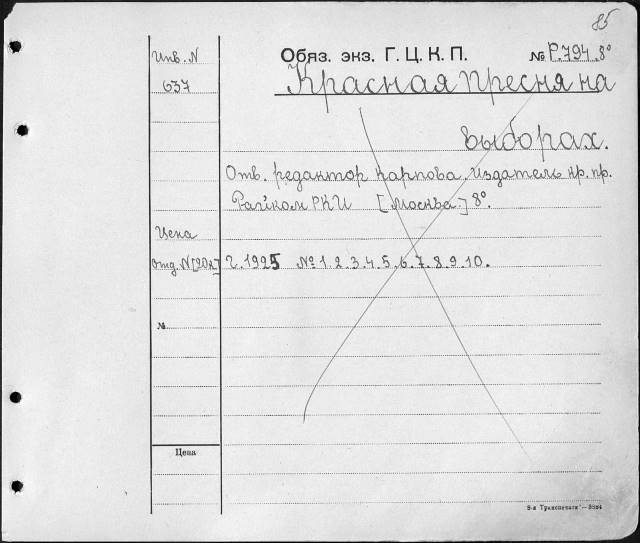 85
Инв. N
637
Обяз. экз. Г. Ц. К. П. № Р.794.8°
Красная Пресня на
выборах.
Отв. редактор Карпова. Издатель кр. пр.
Райком РКИ [Москва.] 8°.
Цена
отд. N [20к.]
Г. 1925 № 1. 2. 3. 4. 5. 6. 7. 8. 9. 10.
№
Цена